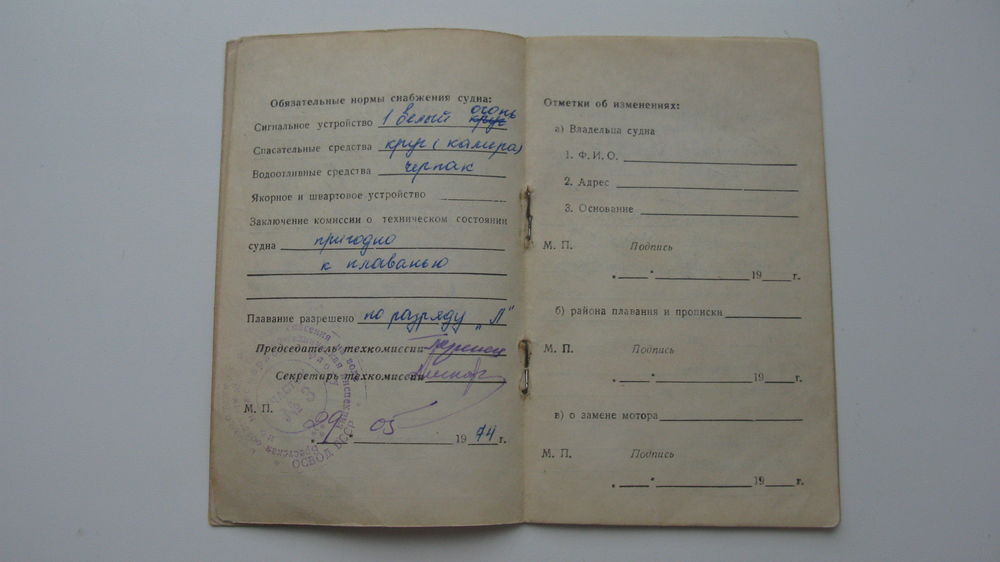 Обязательные нормы снабжения судна:
Сигнальное устройство 1 белый огонь
Спасательные средства круг (камера)
Водоотливные средства черпак
Якорное и швартовое устройство
Заключение комиссии о техническом состоянии
судна пригодно
к плаванью
Плавание разрешено по разряду „Л"
Председатель техкомиссии
Секретарь техкомиссии
М. П.
"29" 05 1974 г.
ОСВОД БССР
Отметки об изменениях:
а) Владельца судна
1. Ф. И. О.
2. Адрес
3. Основание
М. П. Подпись
" " 19 г.
б) района плавания и прописки
М. П. Подпись
" " 19 г.
в) о замене мотора
М. П. Подпись
" " 19 г.